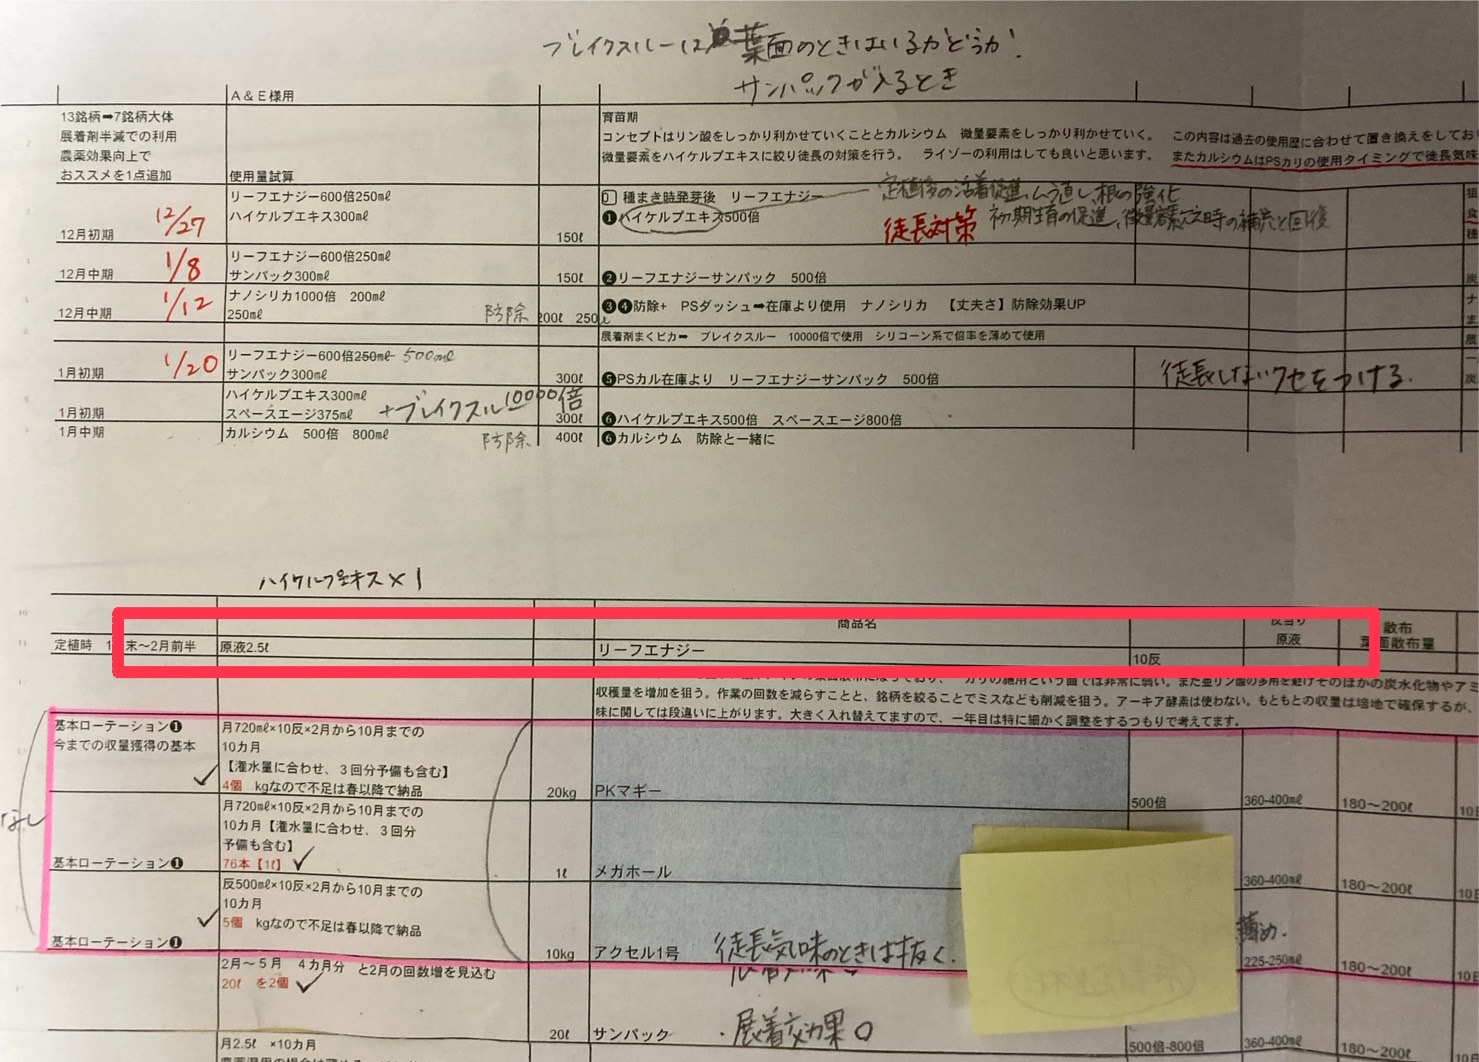 ブレイクスルーは葉面のときはいるかどうか!
サンパックが入るとき
A＆E様用
13銘柄➡7銘柄大体
展着剤半減での利用
農薬効果向上で
おススメを1点追加
使用量試算
育苗期
コンセプトはリン酸をしっかり利かせていくこととカルシウム 微量要素をしっかり利かせていく。 この内容は過去の使用歴に合わせて置き換えをしてお
微量要素をハイケルプエキスに絞り徒長の対策を行う。 ライゾーの利用はしても良いと思います。 またカルシウムはPSカリの使用タイミングで徒長気味
12月初期
12/27
リーフエナジー600倍250㎖
ハイケルプエキス300㎖
150ℓ
種まき時発芽後 リーフエナジー
定植後の活着促進 根の強化
❶ハイケルプエキス500倍
徒長対策
初期生育の促進、
12月中期
1/8
リーフエナジー600倍250㎖
サンパック300㎖
150ℓ
❷リーフエナジーサンパック 500倍
12月中期
1/12
ナノシリカ1000倍 200㎖
250㎖
防除
200ℓ 250ℓ
❸❹防除+ PSダッシュ➡在庫より使用 ナノシリカ 【丈夫さ】防除効果UP
展着剤まくピカ➡ ブレイクスルー 10000倍で使用 シリコーン系で倍率を薄めて使用
1月初期
1/20
リーフエナジー600倍250㎖ 500㎖
サンパック300㎖
300ℓ
❺PSカル在庫より リーフエナジーサンパック 500倍
徒長しないクセをつける.
1月初期
ハイケルプエキス300㎖
スペースエージ375㎖
+ブレイクスルー10000倍
300ℓ
❻ハイケルプエキス500倍 スペースエージ800倍
1月中期
カルシウム 500倍 800㎖
防除
400ℓ
❻カルシウム 防除と一緒に
ハイケルプエキス×1
商品名
反当り
原液
散布
葉面散布量
定植時
末～2月前半
原液2.5ℓ
リーフエナジー
10反
カリの施用という面では非常に弱い。また亜リン酸の多用を避けそのほかの炭水化物やアミ
収穫量を増加を狙う。作業の回数を減らすことと、銘柄を絞ることでミスなども削減を狙う。アーキア酵素は使わない。もともとの収量は培地で確保するが、
味に関しては段違いに上がります。大きく入れ替えてますので、一年目は特に細かく調整をするつもりで考えてます。
なし
基本ローテーション❶
今までの収量獲得の基本
月720㎖×10反×2月から10月までの
10カ月
【潅水量に合わせ、3回分予備も含む】
4個 kgなので不足は春以降で納品
20kg
PKマギー
500倍
360-400㎖
180～200ℓ
基本ローテーション❶
月720㎖×10反×2月から10月までの
10カ月【潅水量に合わせ、3回分
予備も含む】
76本【1ℓ】
1ℓ
メガホール
360-400㎖
180～200ℓ
基本ローテーション❶
反500㎖×10反×2月から10月までの
10カ月
5個 kgなので不足は春以降で納品
10kg
アクセル1号
徒長気味のときは抜く.
薄め.
225-250㎖
180～200ℓ
2月～5月 4カ月分 と2月の回数増を見込む
20ℓ を2個
20ℓ
サンパック
・展着効果○
500倍-800倍
360-400㎖
180～200ℓ
月2.5ℓ ×10カ月